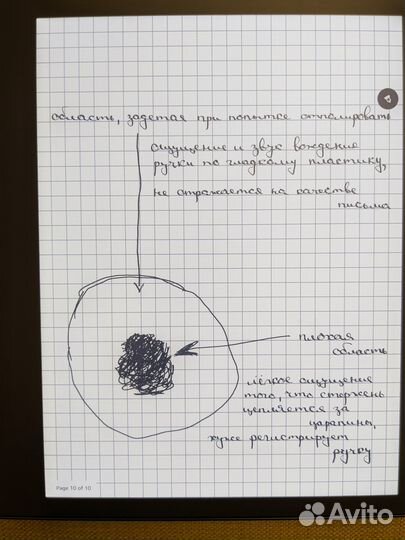 область, задетая при попытке отполировать
ощущение и звук вождения
ручки по гладкому пластику,
не отражается на качестве
письма
плохая
область
лёгкое ощущение
того, что стержень
цепляется за
царапины,
хуже регистрирует
ручку
Page 10 of 10
Avito